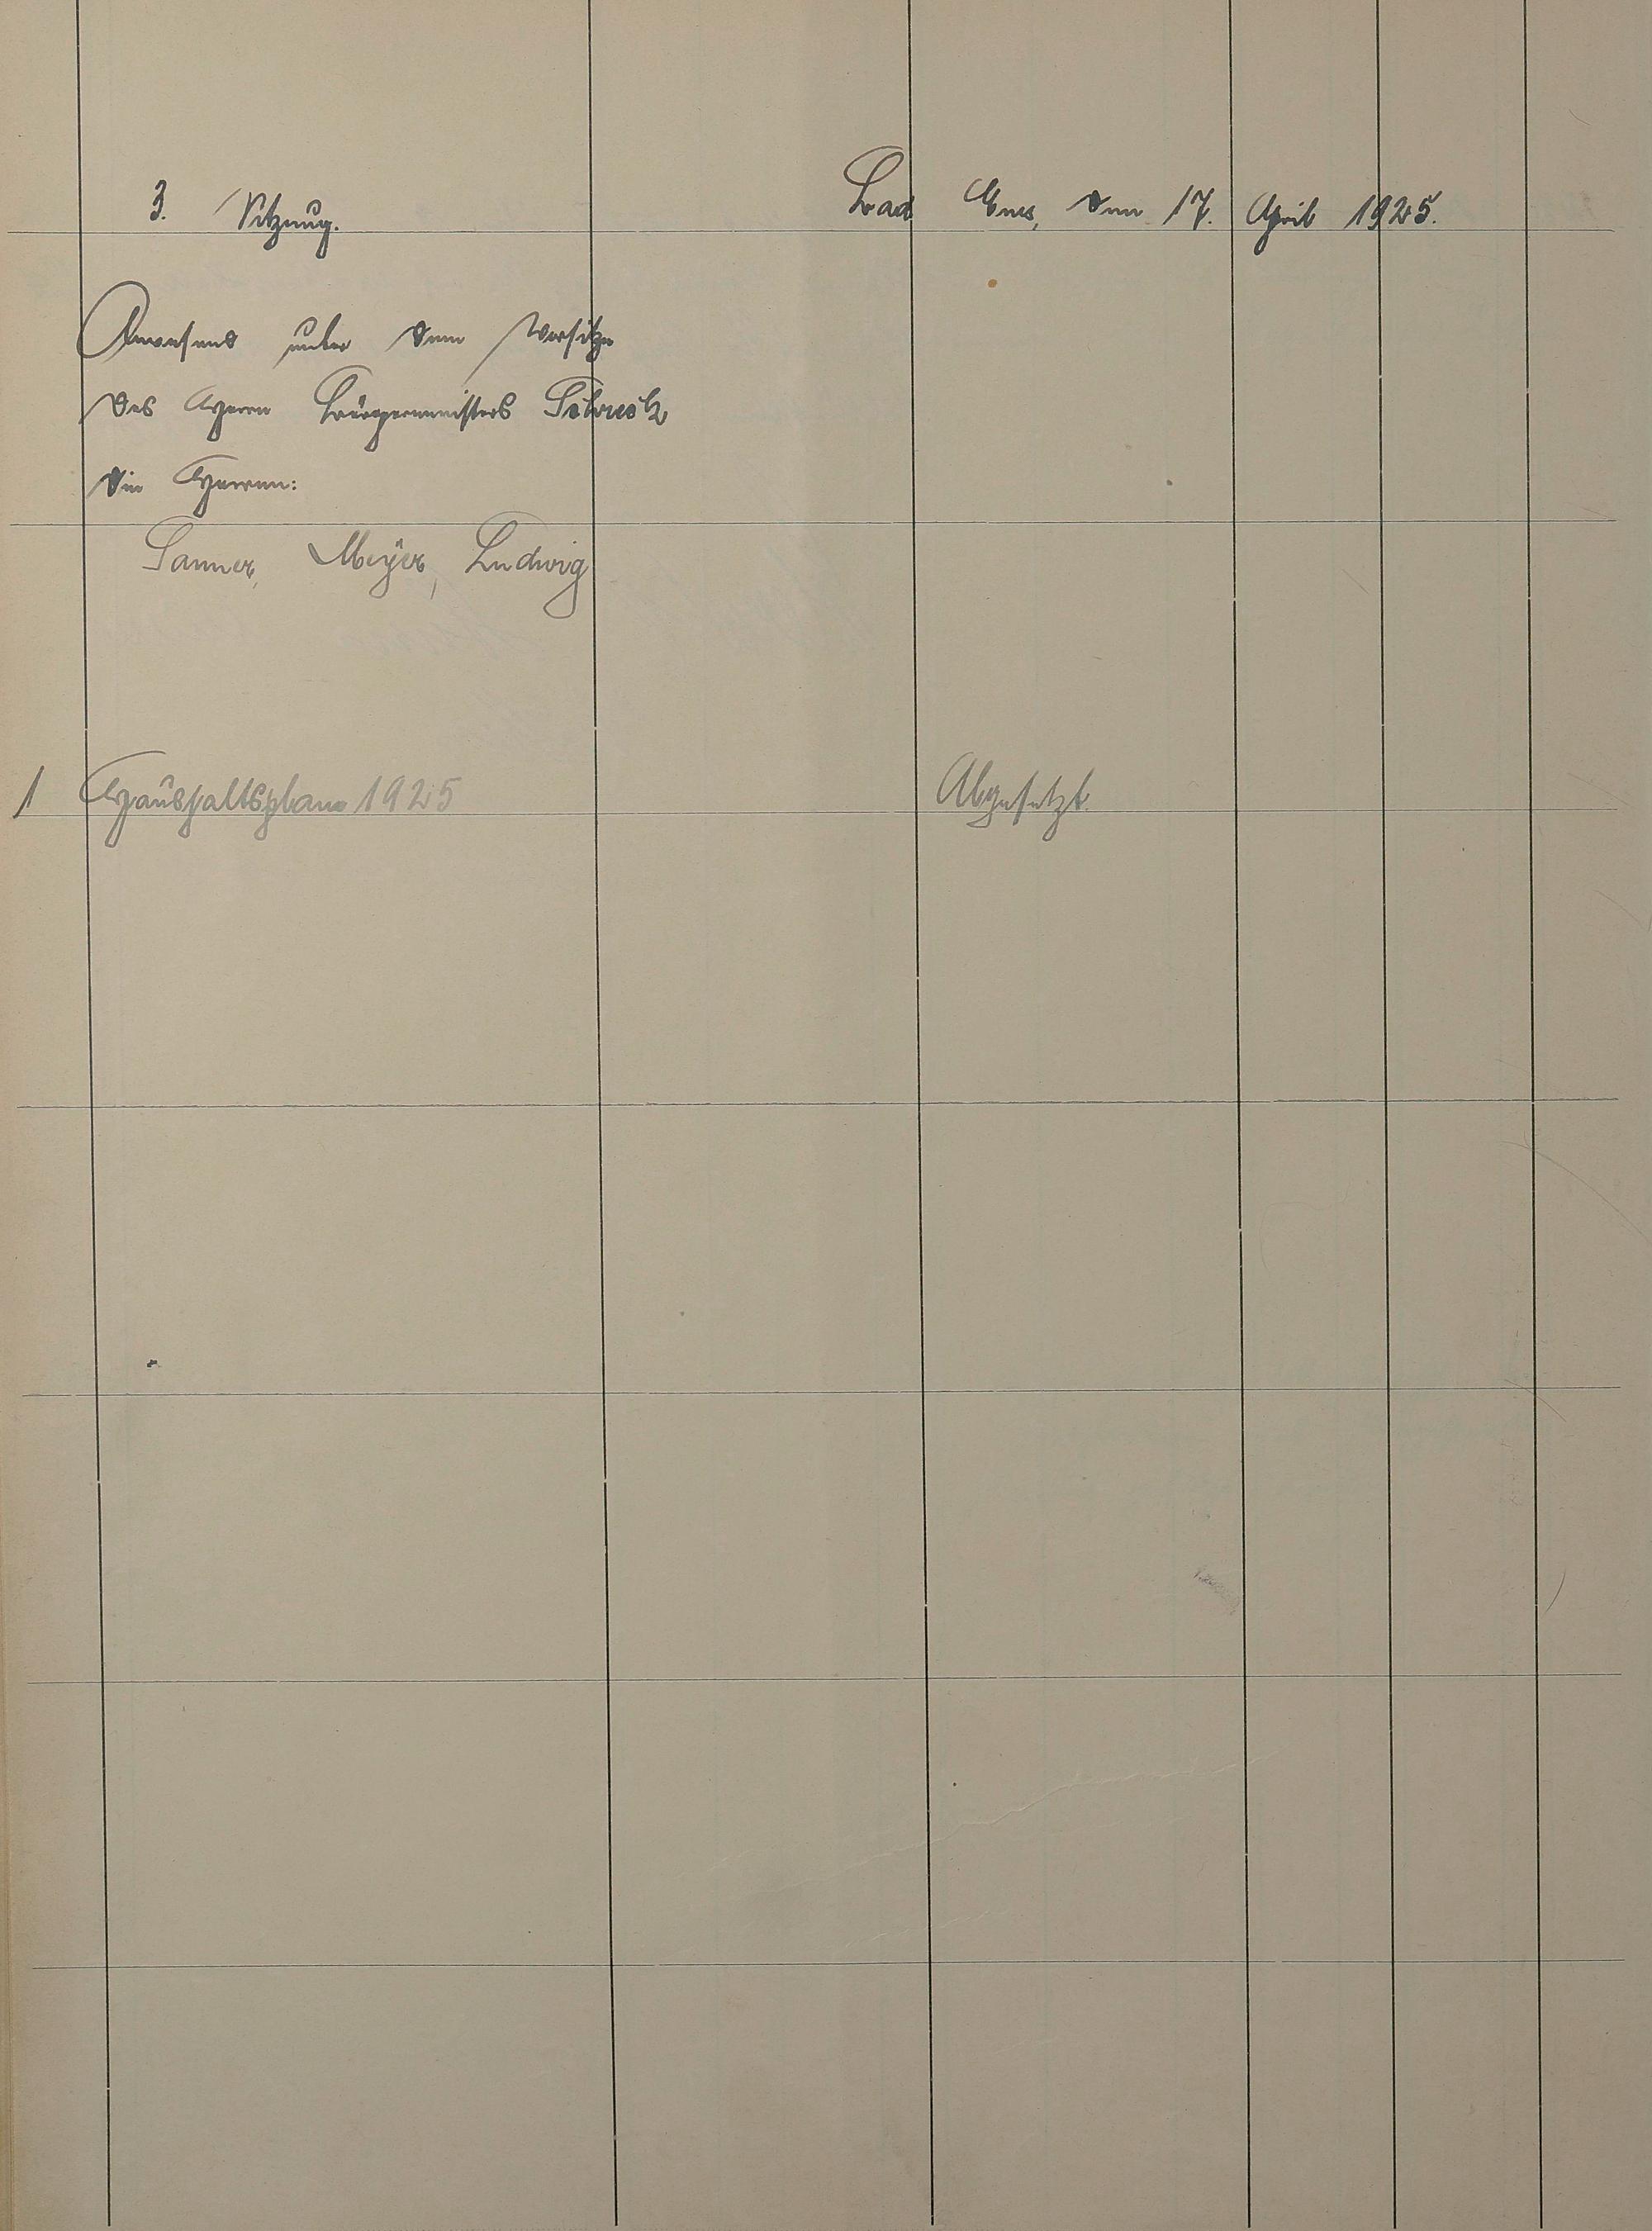 3. Sitzung.
Bad Ems, den 17. April 1925.
Anwesend unter dem Vorsitze
des Herrn Bürgermeisters Schubert
die Herren:
Sanner, Meyer, Ludwig
1 Haushaltsplan 1925
Abgesetzt.